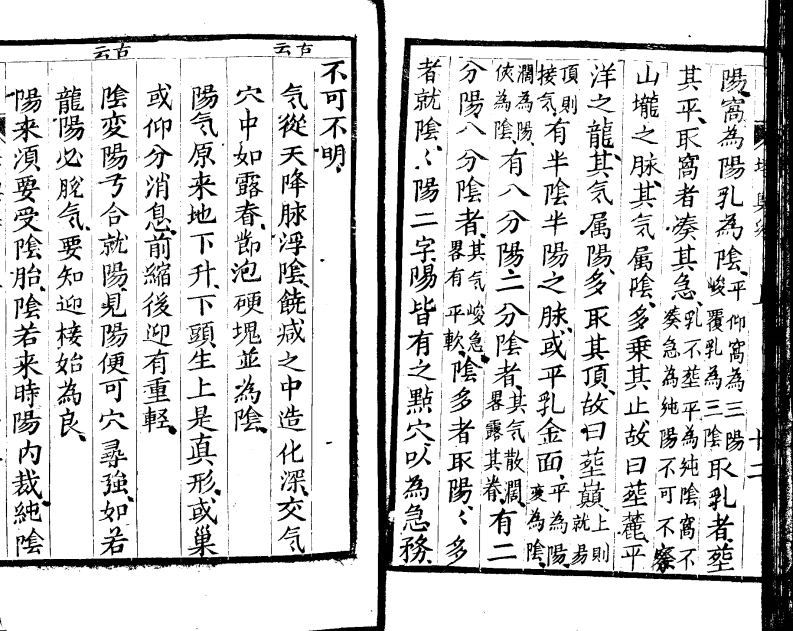 陽窩為陽乳為陰平仰窩為三陽峻覆乳為三陰取乳者塟
其平取窩者湊其急乳不塟平為純陰窩不湊急為純陽不可不察
山壠之脉其气属陰多乘其止故曰塟麓平
洋之龍其气属陽多取其頂故曰塟巔上則就昜
頂則接气有半陰半陽之脉或平乳金面平為陽變為陰
濶為陽俠為陰有八分陽二分陰者其气散濶畧露其眷有二
分陽八分陰者其气峻急畧有平軟陰多者取陽〻多
者就陰〻陽二字陽皆有之點穴以為急務
不可不明
古云
气從天降脉浮陰饒减之中造化深交气
穴中如露眷節泡硬塊並為陰
古云
陽气原来地下升下頭生上是真形或巢
或仰分消息前縮後迎有重輕
陰変陽兮合就陽見陽便可穴尋強如若
龍陽必脫气要知迎接始為良
陽来湏要受陰胎陰若来時陽内裁純陰